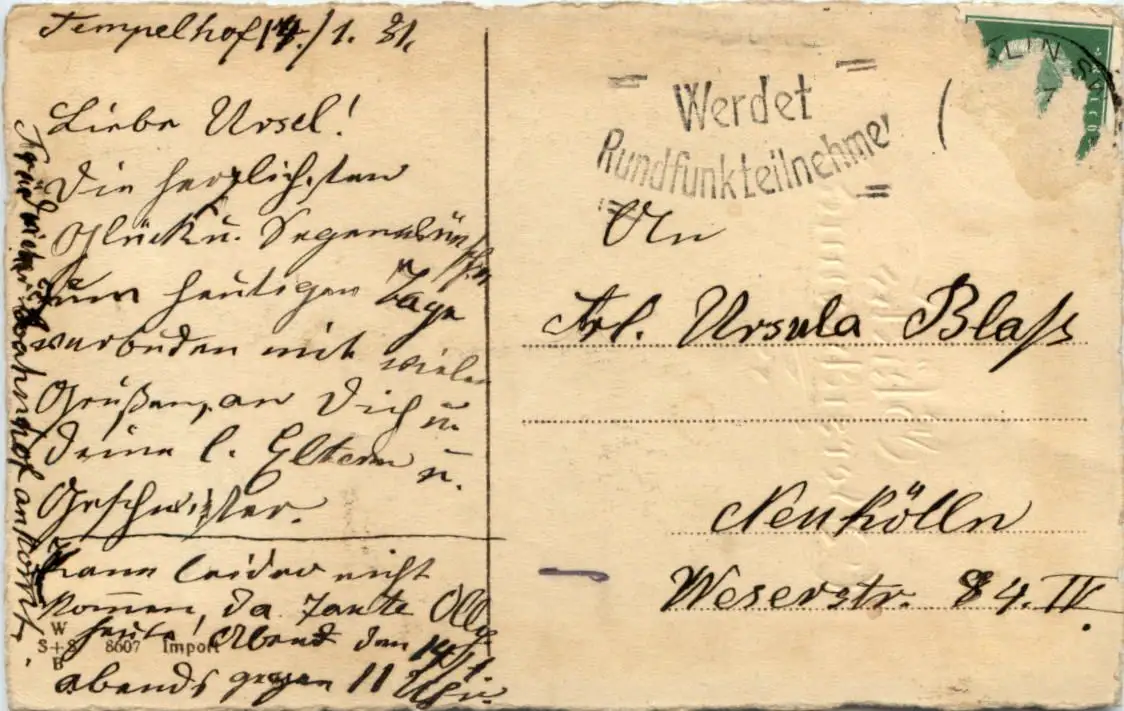 Tempelhof 14./1. 31.
Liebe Ursel!
Die herzlichsten
Glück u. Segenswünschen
zum heutigen Tage
verbunden mit vielen
Grüßen, an Dich u.
Deine l. Eltern u.
Geschwister.
Kann leider nicht
kommen, da Tante Olly
heute Abend den 14./1
abends gegen 11 Uhr.
bahnhof ankomt.
W
S+S 8607 Import
B
LIN S
Werdet
Rundfunkteilnehmer
An
Frl. Ursula Blaß
Neukölln
Weserstr. 84. IV.